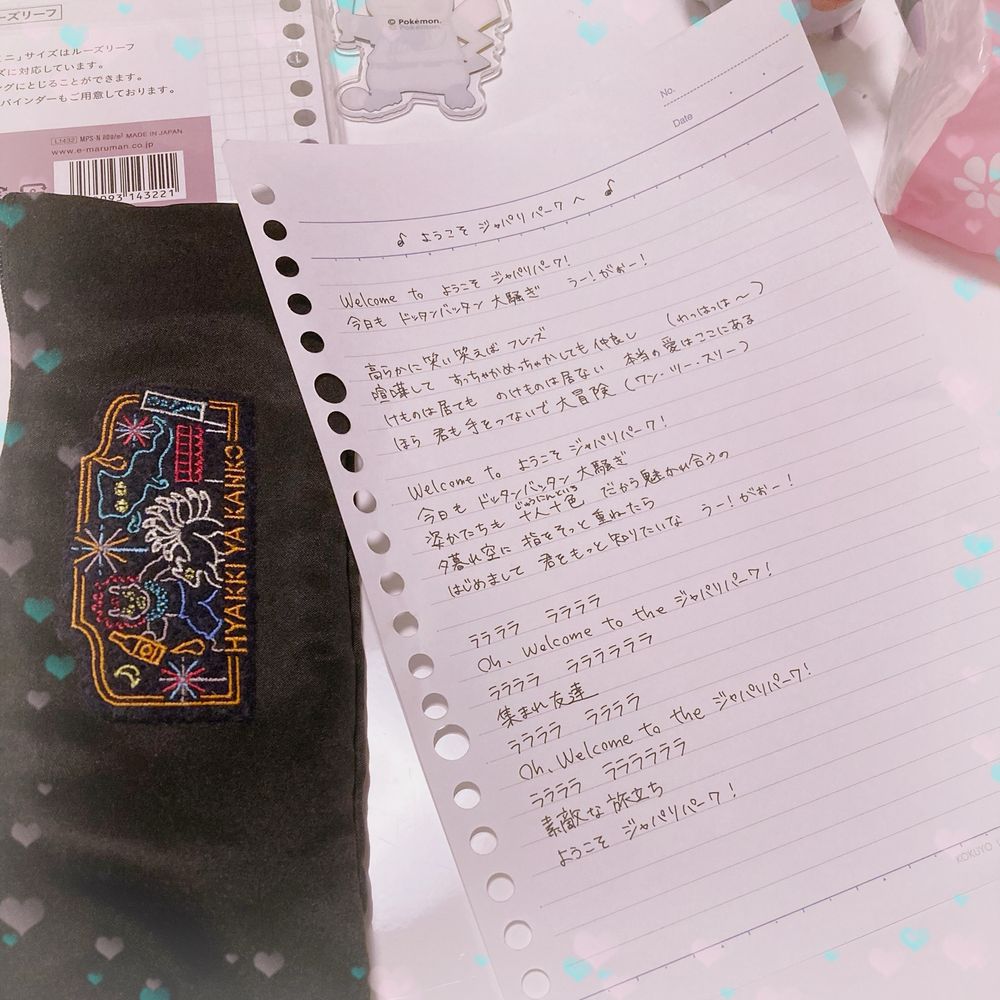 ーズリーフ
ニ」サイズはルーズリーフ
ズに対応しています。
ングにとじることができます。
バインダーもご用意しております。
L1432 MPS-N 80g/m² MADE IN JAPAN
www.e-maruman.co.jp
143221
© Pokémon.
© Pokémon.
No.
Date
♪ ようこそ ジャパリパークへ ♪
Welcome to ようこそ ジャパリパーク!
今日も ドッタンバッタン 大騒ぎ うー!がおー!
高らかに笑い笑えば フレンズ
喧嘩して すっちゃかめっちゃかしても仲良し (わっはっは〜)
けものは居ても のけものは居ない 本当の愛はここにある
ほら 君も手をつないで大冒険 (ワン・ツー・スリー)
Welcome to ようこそ ジャパリパーク!
今日も ドッタンバッタン 大騒ぎ
じゅうにんといろ
姿かたちも 十人十色 だから魅かれ合うの
夕暮れ空に 指をそっと重ねたら
はじめまして 君をもっと知りたいな うー!がおー!
ララララ ララララ
Oh, Welcome to the ジャパリパーク!
ララララ ララララララ
集まれ友達
ララララ ララララ
Oh, Welcome to the ジャパリパーク!
ララララ ララララララ
素敵な旅立ち
ようこそ ジャパリパーク!
KOKUYO
HYAKKI YAKANKO